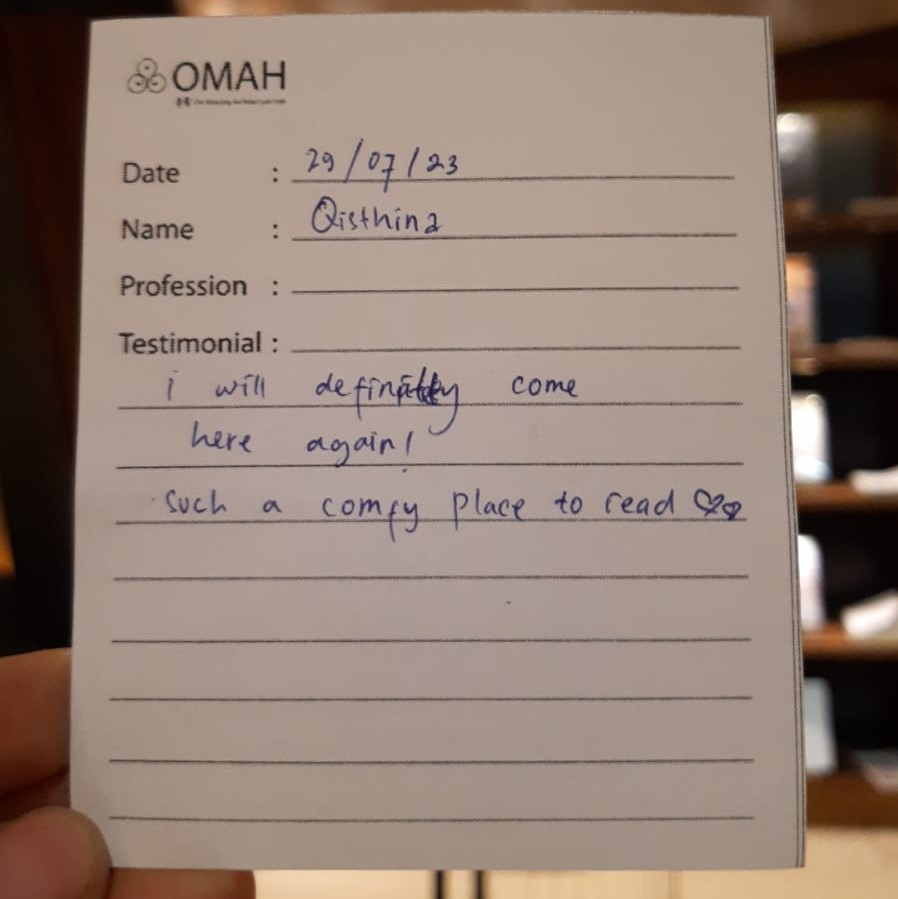 OMAH
Date : 29/07/23
Name : Qisthina
Profession :
Testimonial :
i will definitely come
here again!
Such a comfy place to read ♡♡